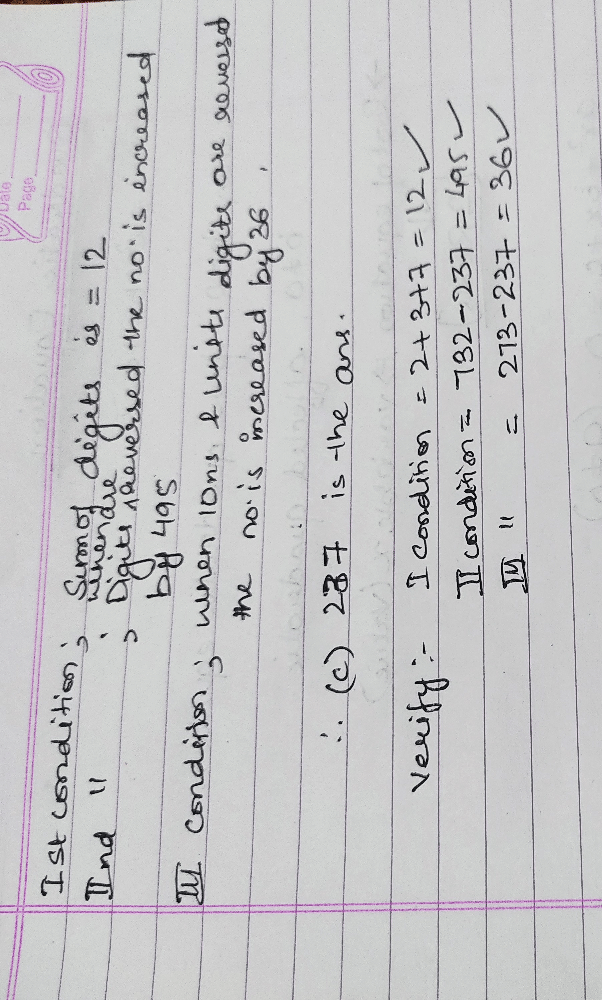 Date
Page
Ist condition; Sum of digits is = 12
IInd " ; when are
Digits reversed the no. is increased
by 495
III condition; when 10ns & units digits are reversed
the no. is increased by 36.
∴ (c) 237 is the ans.
Verify:- I condition = 2+3+7 = 12 ✓
II condition = 732-237 = 495 ✓
III " = 273-237 = 36 ✓